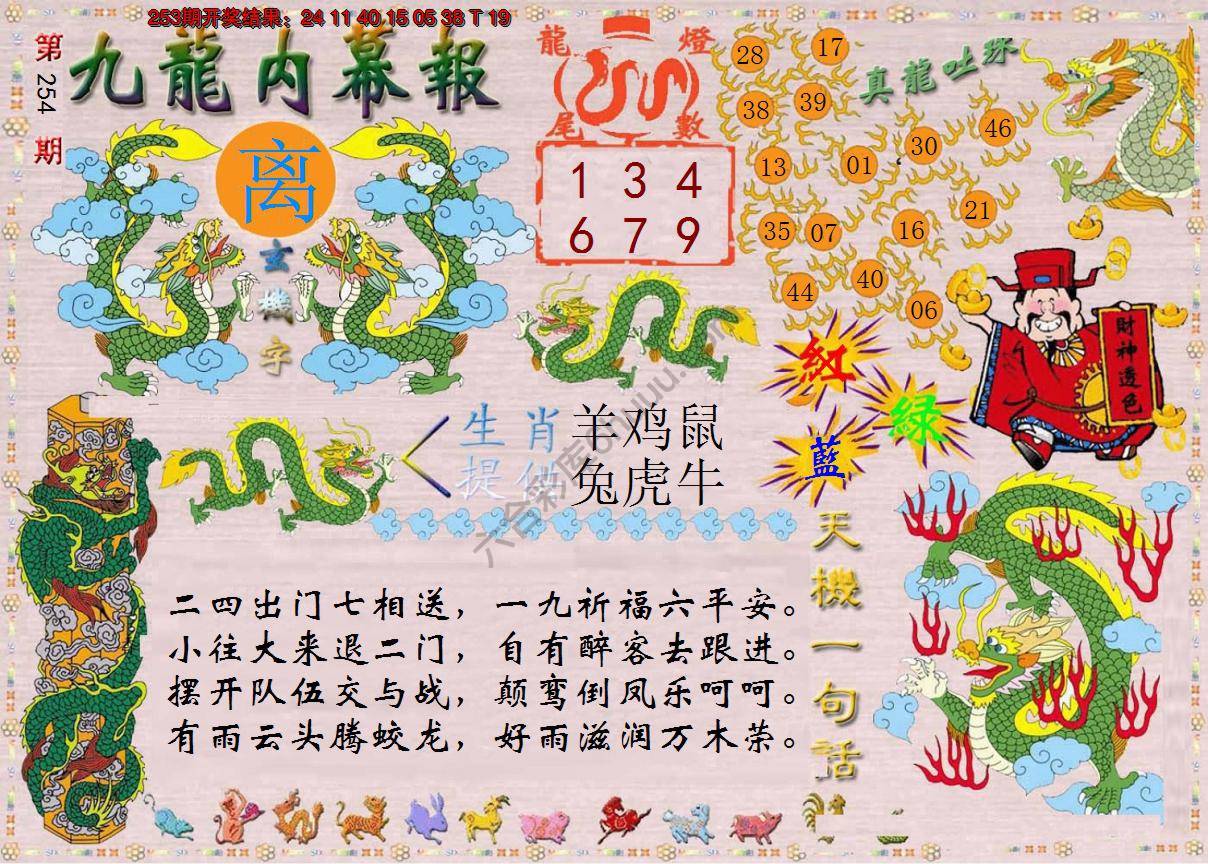 253期开奖结果：24 11 40 15 05 38 T 19
第254期
九龍内幕報
离
玄機字
龍燈
尾數
1 3 4
6 7 9
真龍吐珠
28 17
38 39
13 01 30 46
35 07 16 21
44 40 06
財神透色
紅
綠
藍
生肖 羊鸡鼠
提供 兔虎牛
天機一句話
二四出门七相送，一九祈福六平安。
小往大来退二门，自有醉客去跟进。
摆开队伍交与战，颠鸾倒凤乐呵呵。
有雨云头腾蛟龙，好雨滋润万木荣。